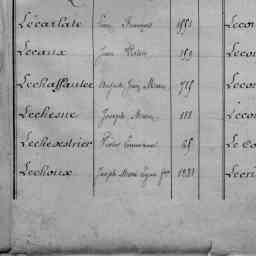 Lécarlate Jean François 1551 Lecor
Lecaux Jean Lecor
Lechaffautec Auguste Jean Marie 755 Lecor
Lechesne Joseph Marie 111 Lecor
Lechesestrier Victor Emmanuel 25
Lechoux Joseph Marie 1281 Lecri